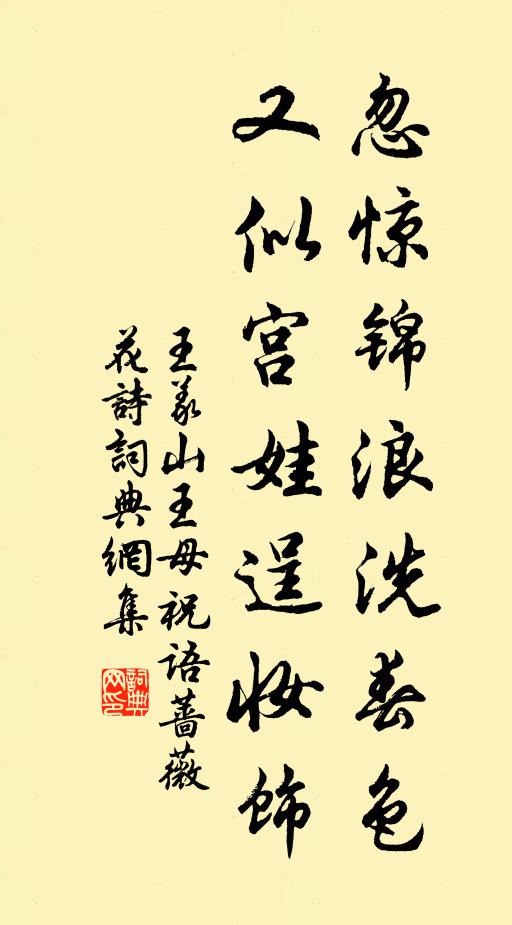 忽惊锦浪洗春色
又似宫娃逞妆饰
王义山王母祝语蔷薇
花詩詞典網集
詞典
网印